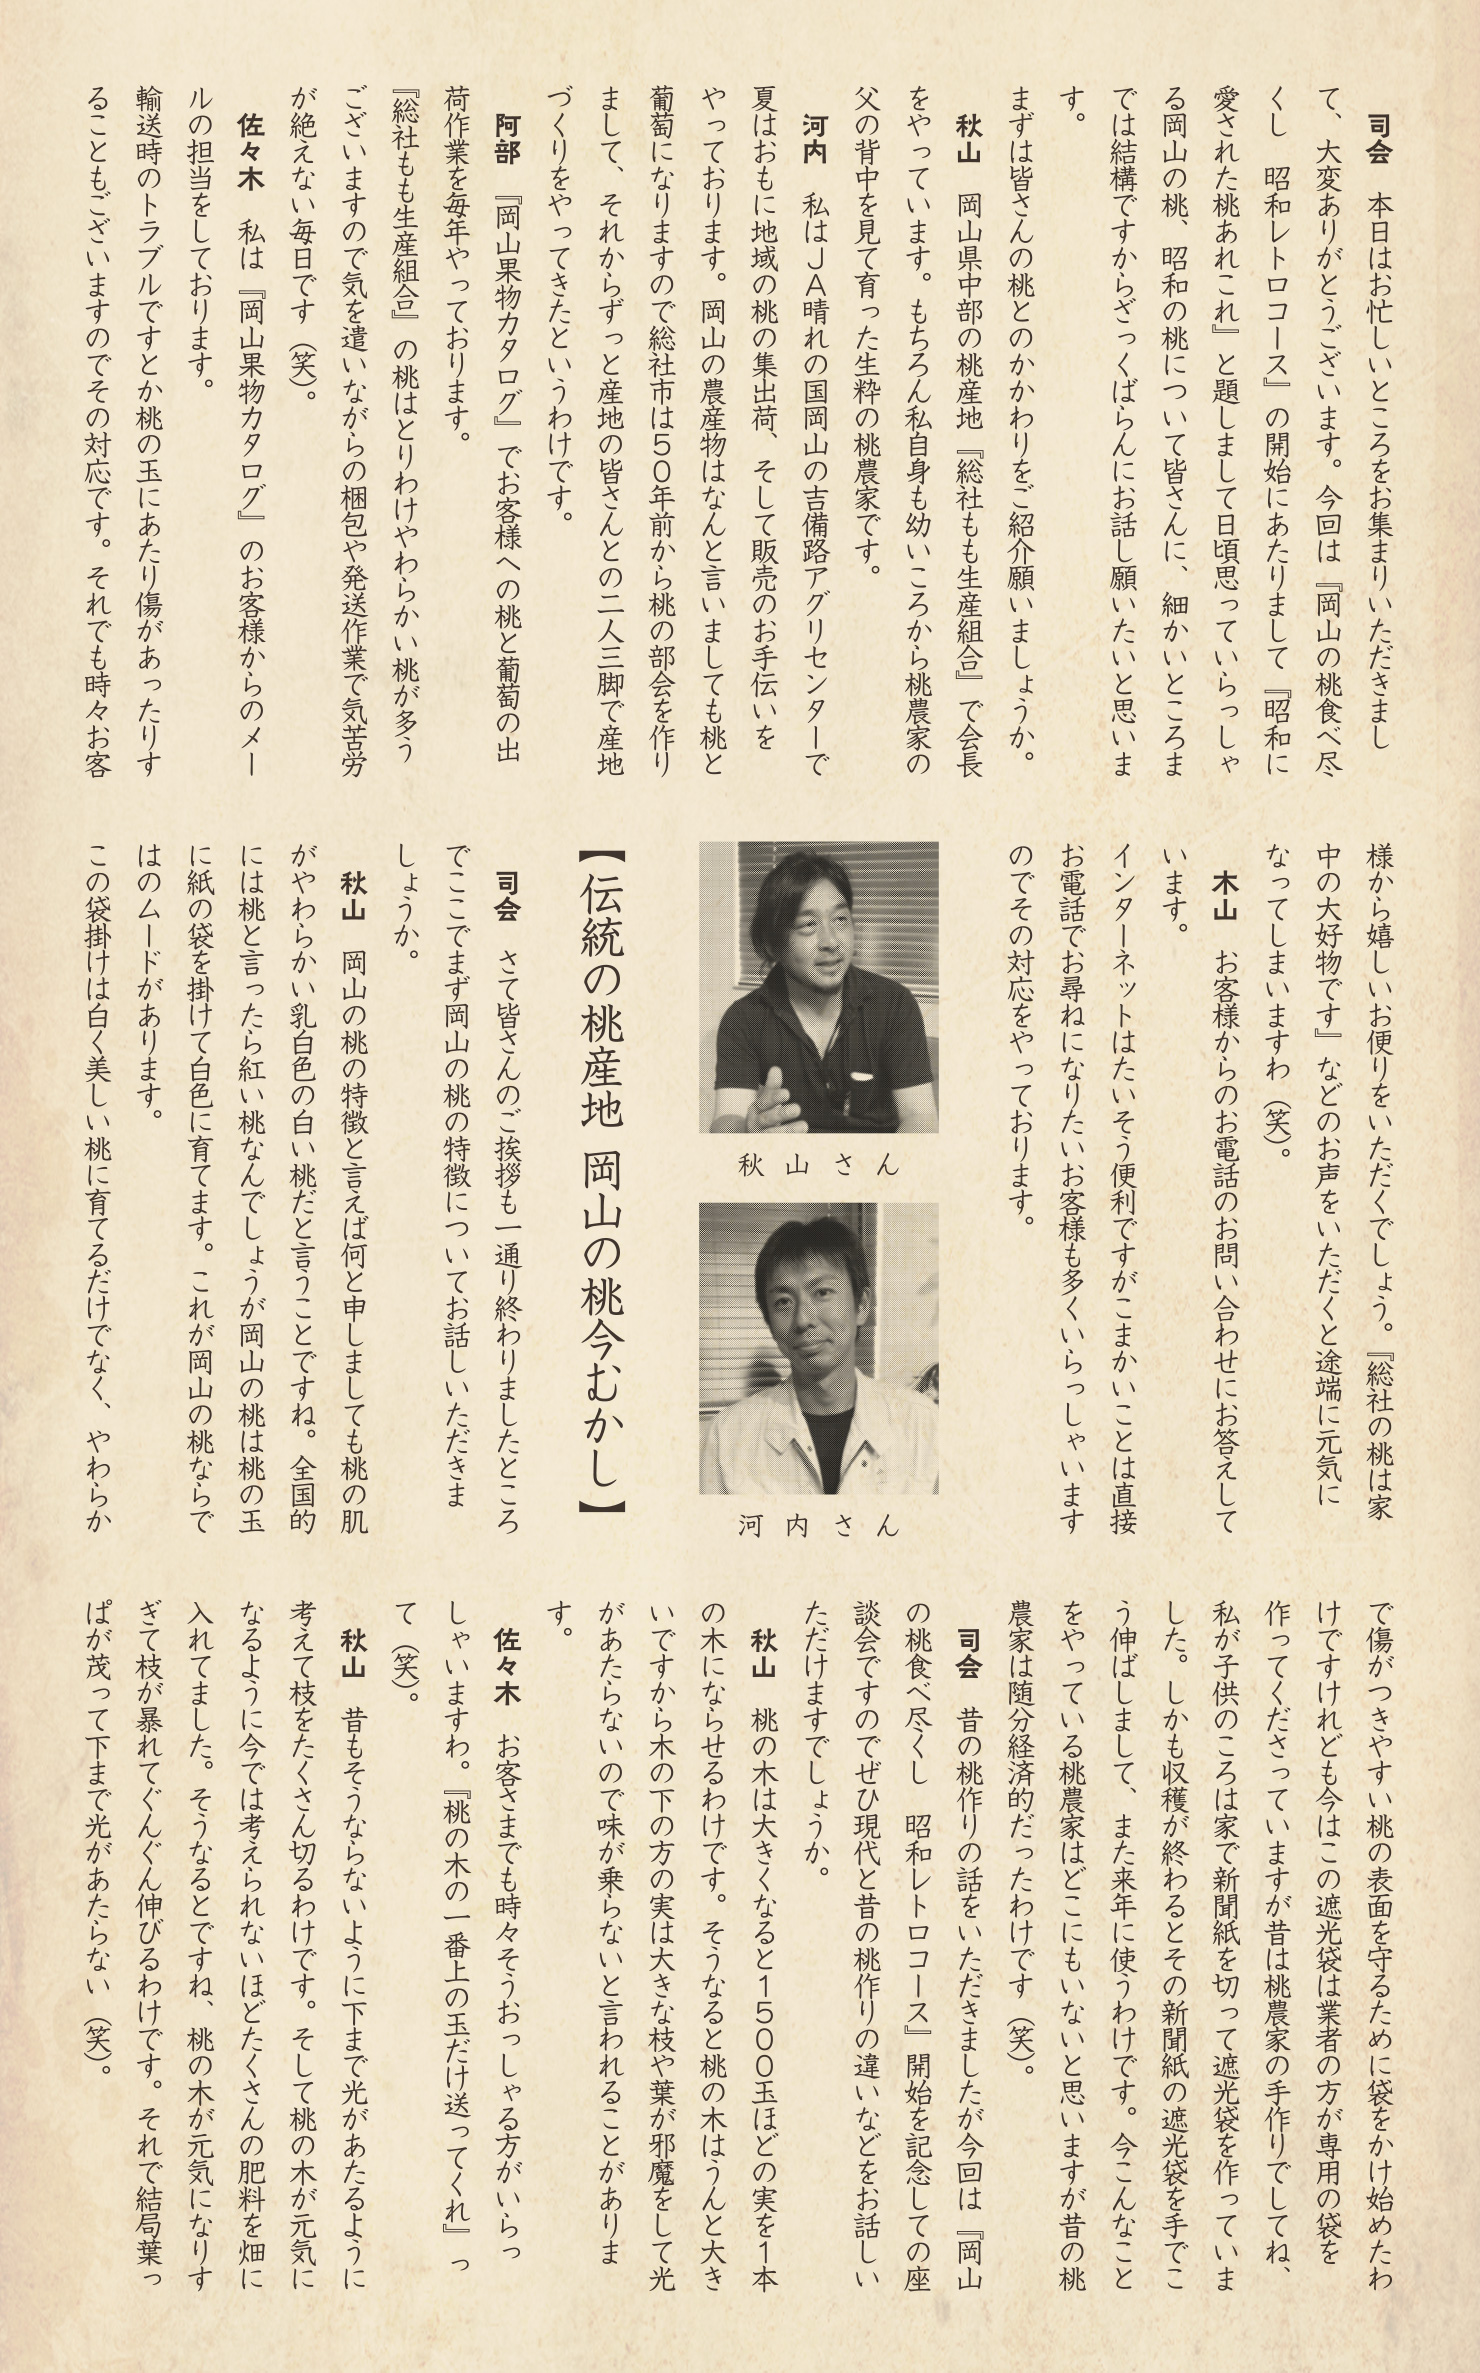 司会　本日はお忙しいところをお集まりいただきまし
て、大変ありがとうございます。今回は『岡山の桃食べ尽
くし　昭和レトロコース』の開始にあたりまして『昭和に
愛された桃あれこれ』と題しまして日頃思っていらっしゃ
る岡山の桃、昭和の桃について皆さんに、細かいところま
では結構ですからざっくばらんにお話し願いたいと思いま
す。
まずは皆さんの桃とのかかわりをご紹介願いましょうか。
秋山　岡山県中部の桃産地『総社もも生産組合』で会長
をやっています。もちろん私自身も幼いころから桃農家の
父の背中を見て育った生粋の桃農家です。
河内　私はＪＡ晴れの国岡山の吉備路アグリセンターで
夏はおもに地域の桃の集出荷、そして販売のお手伝いを
やっております。岡山の農産物はなんと言いましても桃と
葡萄になりますので総社市は５０年前から桃の部会を作り
まして、それからずっと産地の皆さんとの二人三脚で産地
づくりをやってきたというわけです。
阿部　『岡山果物カタログ』でお客様への桃と葡萄の出
荷作業を毎年やっております。
『総社もも生産組合』の桃はとりわけやわらかい桃が多う
ございますので気を遣いながらの梱包や発送作業で気苦労
が絶えない毎日です（笑）。
佐々木　私は『岡山果物カタログ』のお客様からのメー
ルの担当をしております。
輸送時のトラブルですとか桃の玉にあたり傷があったりす
ることもございますのでその対応です。それでも時々お客
様から嬉しいお便りをいただくでしょう。『総社の桃は家
中の大好物です』などのお声をいただくと途端に元気に
なってしまいますわ（笑）。
木山　お客様からのお電話のお問い合わせにお答えして
います。
インターネットはたいそう便利ですがこまかいことは直接
お電話でお尋ねになりたいお客様も多くいらっしゃいます
のでその対応をやっております。
秋山さん
河内さん
【伝統の桃産地 岡山の桃今むかし】
司会　さて皆さんのご挨拶も一通り終わりましたところ
でここでまず岡山の桃の特徴についてお話しいただきま
しょうか。
秋山　岡山の桃の特徴と言えば何と申しましても桃の肌
がやわらかい乳白色の白い桃だと言うことですね。全国的
には桃と言ったら紅い桃なんでしょうが岡山の桃は桃の玉
に紙の袋を掛けて白色に育てます。これが岡山の桃ならで
はのムードがあります。
この袋掛けは白く美しい桃に育てるだけでなく、やわらか
で傷がつきやすい桃の表面を守るために袋をかけ始めたわ
けですけれども今はこの遮光袋は業者の方が専用の袋を
作ってくださっていますが昔は桃農家の手作りでしてね、
私が子供のころは家で新聞紙を切って遮光袋を作っていま
した。しかも収穫が終わるとその新聞紙の遮光袋を手でこ
う伸ばしまして、また来年に使うわけです。今こんなこと
をやっている桃農家はどこにもいないと思いますが昔の桃
農家は随分経済的だったわけです（笑）。
司会　昔の桃作りの話をいただきましたが今回は『岡山
の桃食べ尽くし　昭和レトロコース』開始を記念しての座
談会ですのでぜひ現代と昔の桃作りの違いなどをお話しい
ただけますでしょうか。
秋山　桃の木は大きくなると１５００玉ほどの実を１本
の木にならせるわけです。そうなると桃の木はうんと大き
いですから木の下の方の実は大きな枝や葉が邪魔をして光
があたらないので味が乗らないと言われることがありま
す。
佐々木　お客さまでも時々そうおっしゃる方がいらっ
しゃいますわ。『桃の木の一番上の玉だけ送ってくれ』っ
て（笑）。
秋山　昔もそうならないように下まで光があたるように
考えて枝をたくさん切るわけです。そして桃の木が元気に
なるように今では考えられないほどたくさんの肥料を畑に
入れてました。そうなるとですね、桃の木が元気になりす
ぎて枝が暴れてぐんぐん伸びるわけです。それで結局葉っ
ぱが茂って下まで光があたらない（笑）。